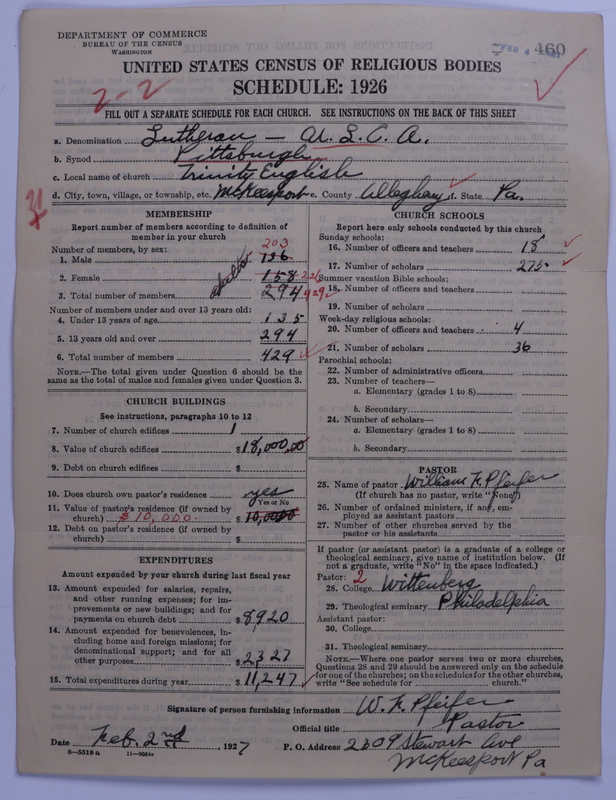 DEPARTMENT OF COMMERCE
BUREAU OF THE CENSUS
WASHINGTON
FEB 4 460
UNITED STATES CENSUS OF RELIGIOUS BODIES
SCHEDULE: 1926
2-2
FILL OUT A SEPARATE SCHEDULE FOR EACH CHURCH. SEE INSTRUCTIONS ON THE BACK OF THIS SHEET
a. Denomination Lutheran — U. L. C. A.
b. Synod Pittsburgh
c. Local name of church Trinity English
d. City, town, village, or township, etc. McKeesport e. County Allegheny f. State Pa.
MEMBERSHIP
Report number of members according to definition of
member in your church
Number of members, by sex: 203
1. Male 136
2. Female 158 226
3. Total number of members 294 429
Number of members under and over 13 years old:
4. Under 13 years of age 135
5. 13 years old and over 294
6. Total number of members 429
NOTE.—The total given under Question 6 should be
same as the total of males and females given under Question 3.
CHURCH BUILDINGS
See instructions, paragraphs 10 to 12
7. Number of church edifices 1
8. Value of church edifices $18,000.00
9. Debt on church edifices $
10. Does church own pastor's residence yes
Yes or No
11. Value of pastor's residence (if owned by
church) $10,000. $10,000
12. Debt on pastor's residence (if owned by
church) $
EXPENDITURES
Amount expended by your church during last fiscal year
13. Amount expended for salaries, repairs,
and other running expenses; for im-
provements or new buildings; and for
payments on church debt $8920
14. Amount expended for benevolences, in-
cluding home and foreign missions; for
denominational support; and for all
other purposes $2327
15. Total expenditures during year $11,247
CHURCH SCHOOLS
Report here only schools conducted by this church
Sunday schools:
16. Number of officers and teachers 18
17. Number of scholars 275
Summer vacation Bible schools:
18. Number of officers and teachers
19. Number of scholars
Week-day religious schools:
20. Number of officers and teachers 4
21. Number of scholars 36
Parochial schools:
22. Number of administrative officers
23. Number of teachers—
a. Elementary (grades 1 to 8)
b. Secondary
24. Number of scholars—
a. Elementary (grades 1 to 8)
b. Secondary
PASTOR
25. Name of pastor William F. Pfeifer
(If church has no pastor, write "None")
26. Number of ordained ministers, if any, em-
ployed as assistant pastors
27. Number of other churches served by the
pastor or his assistants
If pastor (or assistant pastor) is a graduate of a college or
theological seminary, give name of institution below. (If
not a graduate, write "No" in the space indicated.)
Pastor: 2
28. College Wittenberg
29. Theological seminary Philadelphia
Assistant pastor:
30. College
31. Theological seminary
NOTE.—Where one pastor serves two or more churches,
Questions 28 and 29 should be answered only on the schedule
for one of the churches; on the schedules for the other churches,
write "See schedule for church."
Signature of person furnishing information W. F. Pfeifer
Official title Pastor
Date Feb. 2nd, 1927 P. O. Address 2309 Stewart Ave
8-5518a McKeesport Pa